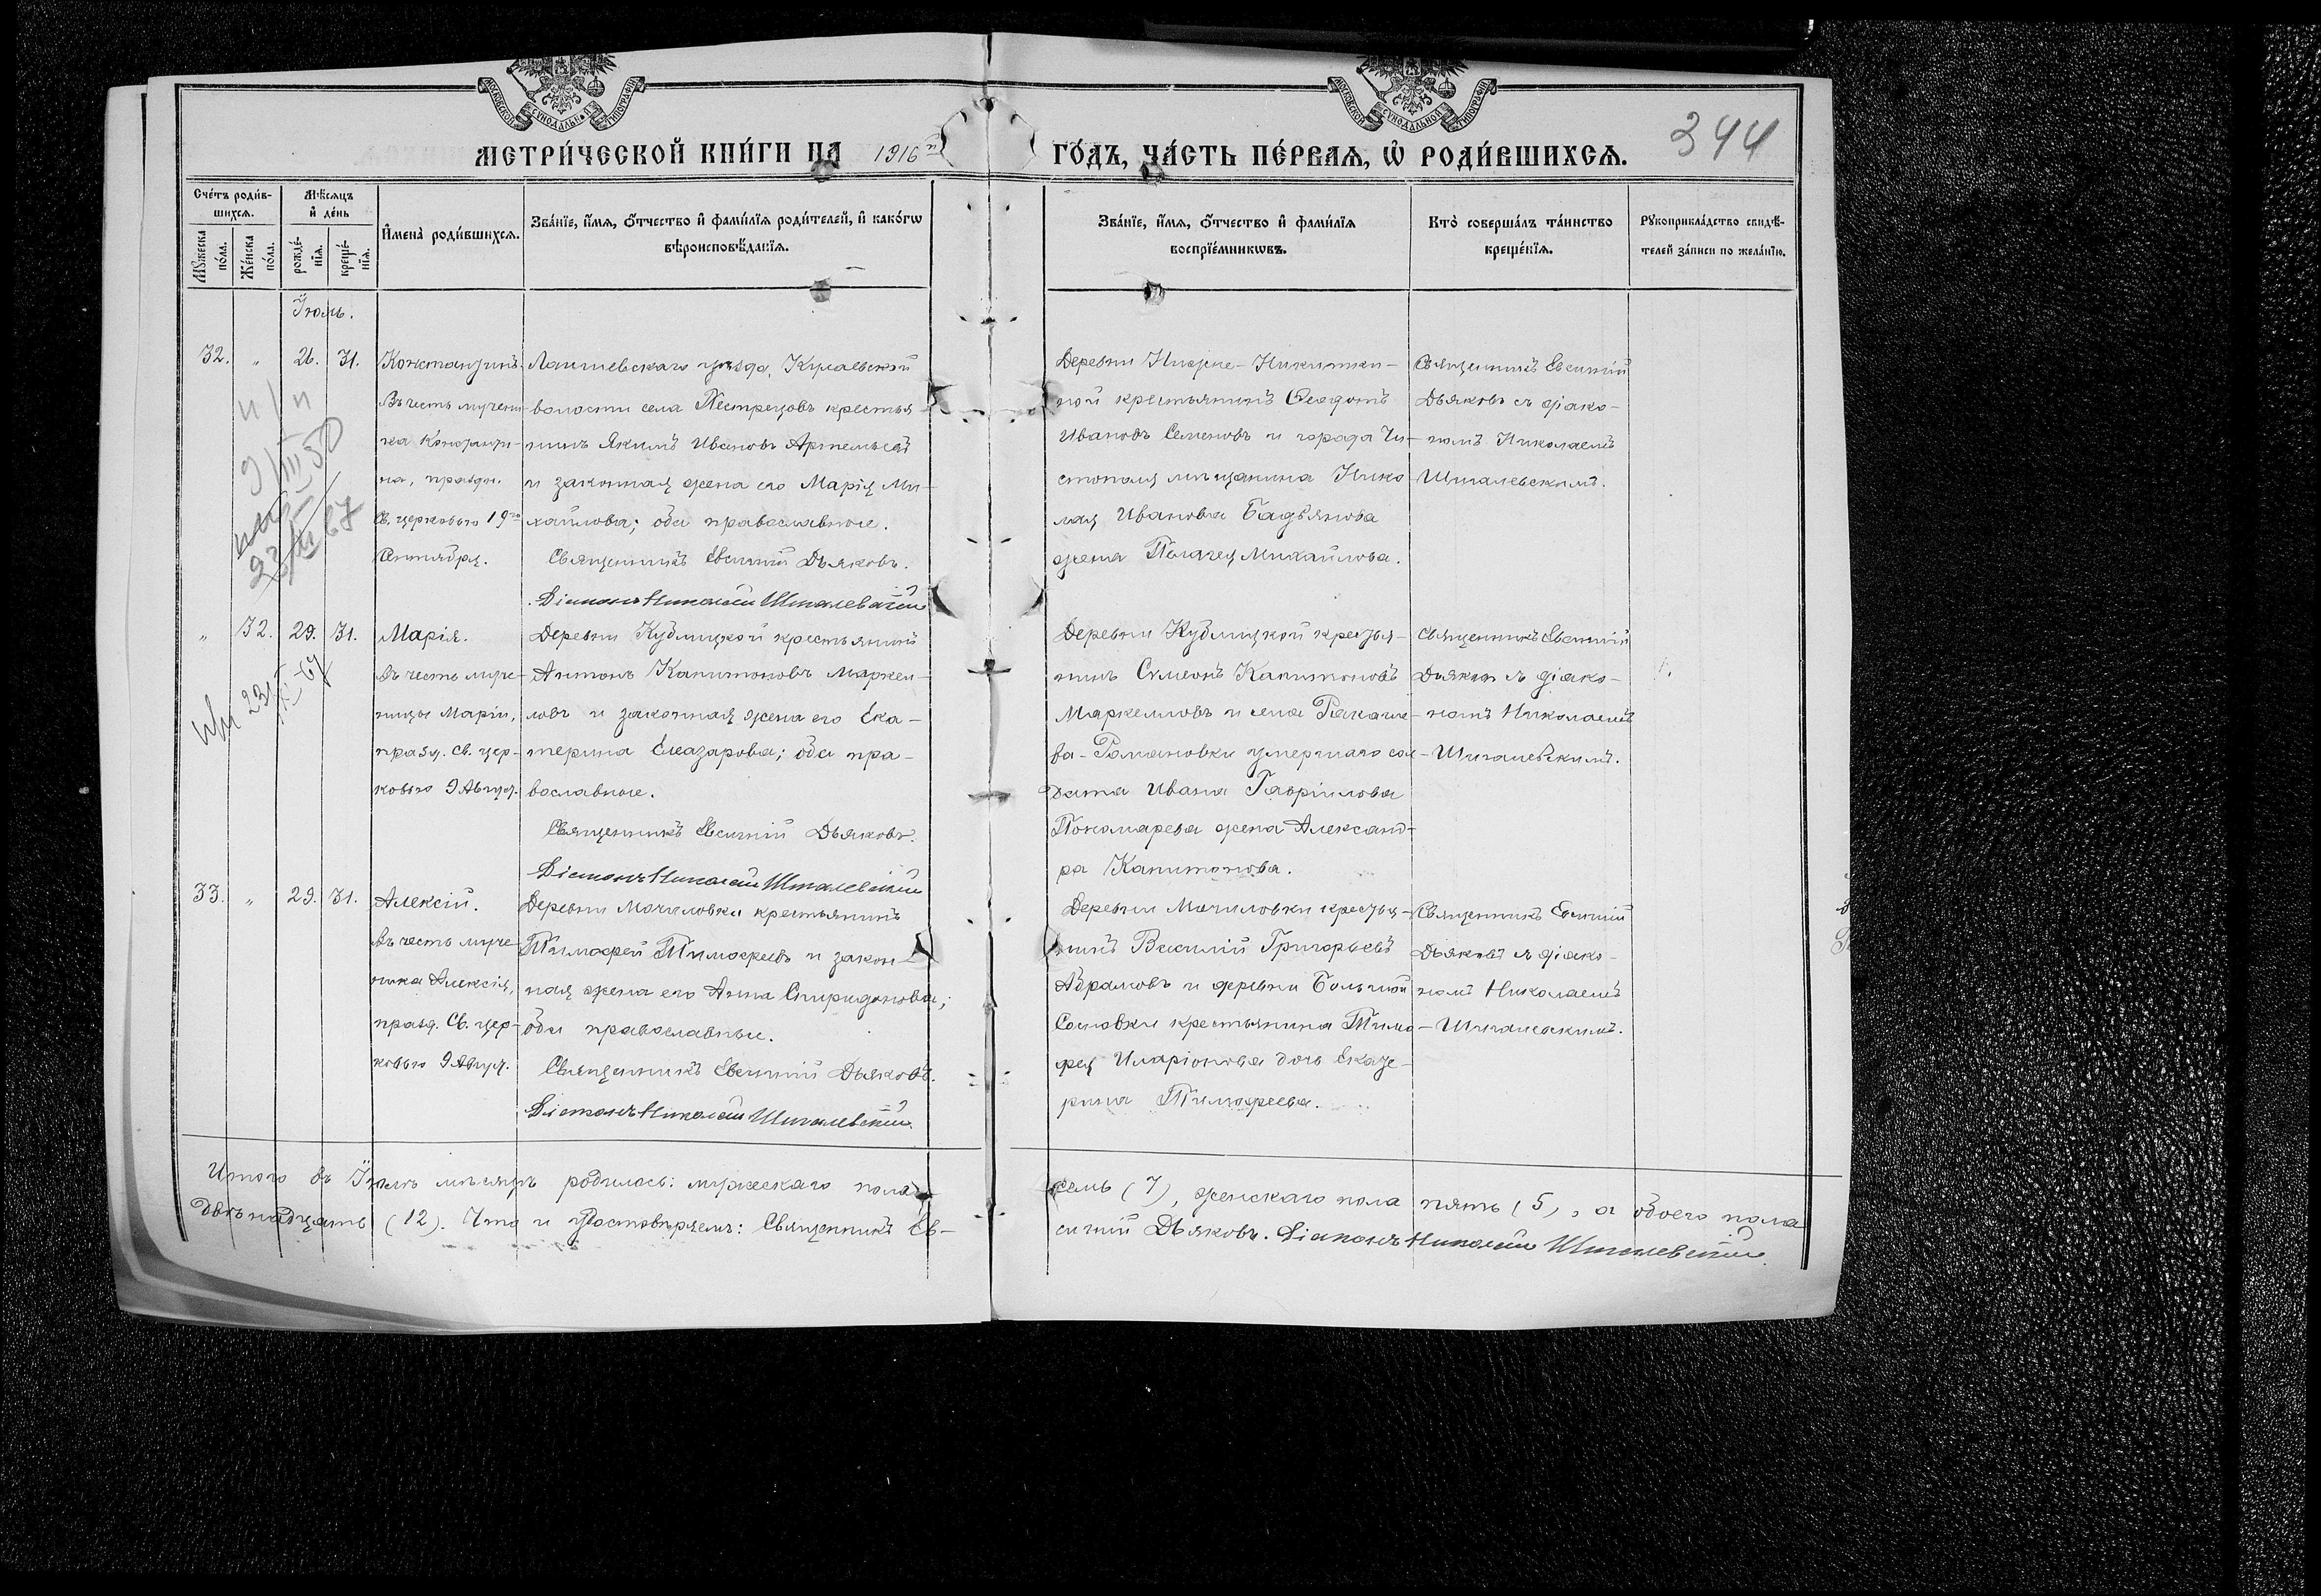 МОСКОВСКОЙ СѴНОДАЛЬНОЙ ТИПОГРАФІИ
МОСКОВСКОЙ СѴНОДАЛЬНОЙ ТИПОГРАФІИ
МЕТРИ́ЧЕСКОЙ КНИ́ГИ НА 1916й ГО́ДЪ, ЧА́СТЬ ПЕ́РВАЯ, Ѡ҆ РОДИ́ВШИХСЯ.
344
Сче́тъ роди́в-
шихся.
Мѣ́сяцъ
и҆ де́нь
Мꙋжеска по́ла.
Же́нска по́ла.
рожде́-
нїя.
креще́-
нїя.
И҆мена̀ роди́вшихся.
Зва́нїе, и҆́мя, ѻ҆́тчество и҆ фами́лїя роди́телей, и҆ како́гѡ
вѣроисповѣ́данїя.
Зва́нїе, и҆́мя, ѻ҆́тчество и҆ фами́лїя
воспрїе́мникѡвъ.
Кто̀ соверша́лъ та́инство
креще́нїя.
Рꙋкоприкла́дство свидѣ́-
телей за́писи по жела́нїю.
Іюль.
32. " 26. 31.
Константинъ.
Въ честь мучени-
ка Константи-
на, праздн.
Св. церковью 19го
Сентября.
Лаишевскаго уѣзда, Кулаевской
волости села Пестрецовъ крестья-
нинъ Якимъ Ивановъ Артемьевъ
и законная жена его Марія Ми-
хайлова; оба православные.
Священникъ Евсигній Дьяковъ.
Діаконъ Николай Шигалевскій
Деревни Нижне-Никитки-
ной крестьянинъ Ѳеодотъ
Ивановъ Семеновъ и города Чи-
стополя мѣщанина Нико
лая Иванова Бадьянова
жена Пелагея Михайлова.
Священникъ Евсигній
Дьяковъ съ діако-
номъ Николаемъ
Шигалевскимъ.
" 32. 29. 31.
Марія.
Въ честь муче-
ницы Маріи,
празд. Св. цер-
ковью 9 Август.
Деревни Кубицкой крестьянинъ
Антонъ Капитоновъ Маркел-
ловъ и законная жена его Ека-
терина Елеазарова; оба пра-
вославные.
Священникъ Евсигній Дьяковъ.
Діаконъ Николай Шигалевскій
Деревни Кубицкой крестья-
нинъ Симеонъ Капитоновъ
Маркелловъ и села
ва-Романовки умершаго сол-
дата Ивана Гавріилова
Пономарева жена Александ-
ра Капитонова.
Священникъ Евсигній
Дьяковъ съ діако-
номъ Николаемъ
Шигалевскимъ.
33. " 29. 31.
Алексій.
Въ честь муче-
ника Алексія,
празд. Св. цер-
ковью 9 Август.
Деревни Мочиловки крестьянинъ
Тимофей Тимофеевъ и закон-
ная жена его Анна Спиридонова;
оба православные.
Священникъ Евсигній Дьяковъ.
Діаконъ Николай Шигалевскій.
Деревни Мочиловки крестья-
нинъ Василій Григорьевъ
Абрамовъ и деревни Большой
Сосновки крестьянина Тимо
фея Иларіонова дочь Екате-
рина Тимофеева.
Священникъ Евсигній
Дьяковъ съ діако-
номъ Николаемъ
Шигалевскимъ.
Итого въ Іюлѣ мѣсяцѣ родилось: мужескаго пола семь (7), женскаго пола пять (5), а обоего пола
двѣнадцать (12). Что и удостовѣряемъ: Священникъ Ев-сигній Дьяковъ. Діаконъ Николай Шигалевскій.